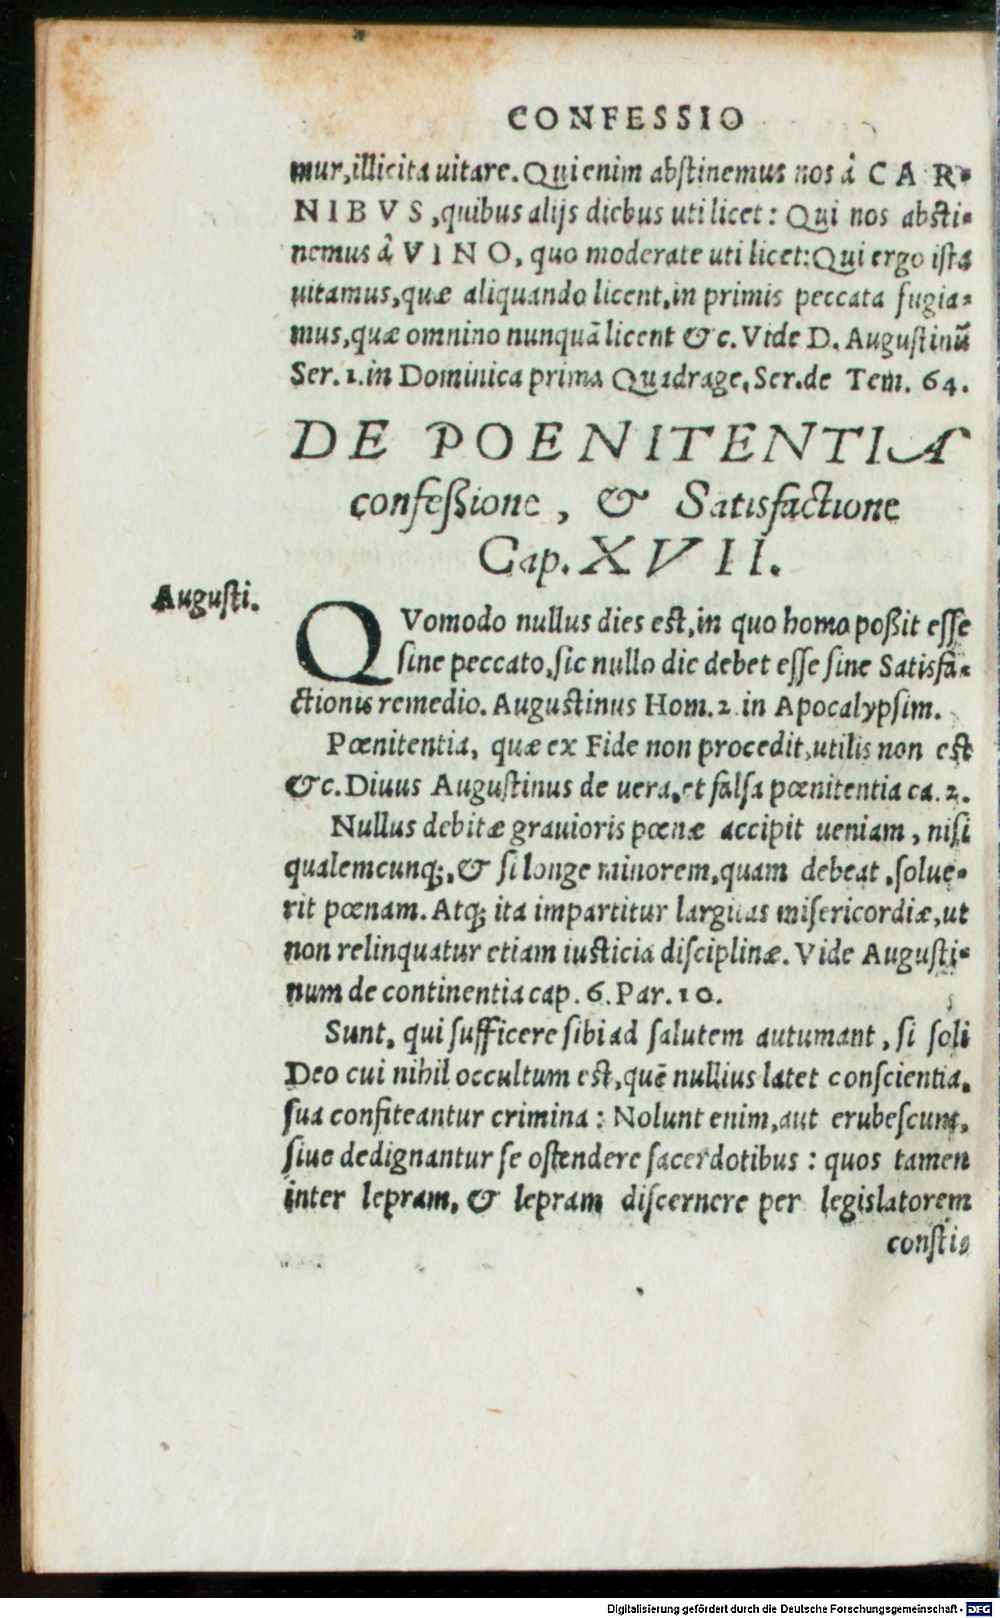 CONFESSIO
mur, illicita uitare. Qui enim abstinemus nos à CAR-
NIBVS, quibus alijs diebus uti licet: Qui nos absti-
nemus à VINO, quo moderate uti licet: Qui ergo ista
uitamus, quæ aliquando licent, in primis peccata fugia-
mus, quæ omnino nunquã licent & c. Vide D. Augustinũ
Ser. 1. in Dominica prima Quadrage, Ser. de Tem. 64.
DE POENITENTIA
confeßione, & Satisfactione
Cap. XVII.
Augusti.
QVomodo nullus dies est, in quo homo poßit esse
sine peccato, sic nullo die debet esse sine Satisfa-
ctionis remedio. Augustinus Hom. 2 in Apocalypsim.
Pœnitentia, quæ ex Fide non procedit, utilis non est
& c. Diuus Augustinus de uera, et falsa pœnitentia ca. 2.
Nullus debitæ grauioris pœnæ accipit ueniam, nisi
qualemcunq;, & si longe minorem, quam debeat, solue-
rit pœnam. Atq; ita impartitur largitas misericordiæ, ut
non relinquatur etiam iusticia disciplinæ. Vide Augusti-
num de continentia cap. 6. Par. 10.
Sunt, qui sufficere sibi ad salutem autumant, si soli
Deo cui nihil occultum est, quẽ nullius latet conscientia,
sua confiteantur crimina: Nolunt enim, aut erubescunt,
siue dedignantur se ostendere sacerdotibus: quos tamen
inter lepram, & lepram discernere per legislatorem
consti-
Digitalisierung gefördert durch die Deutsche Forschungsgemeinschaft - DFG